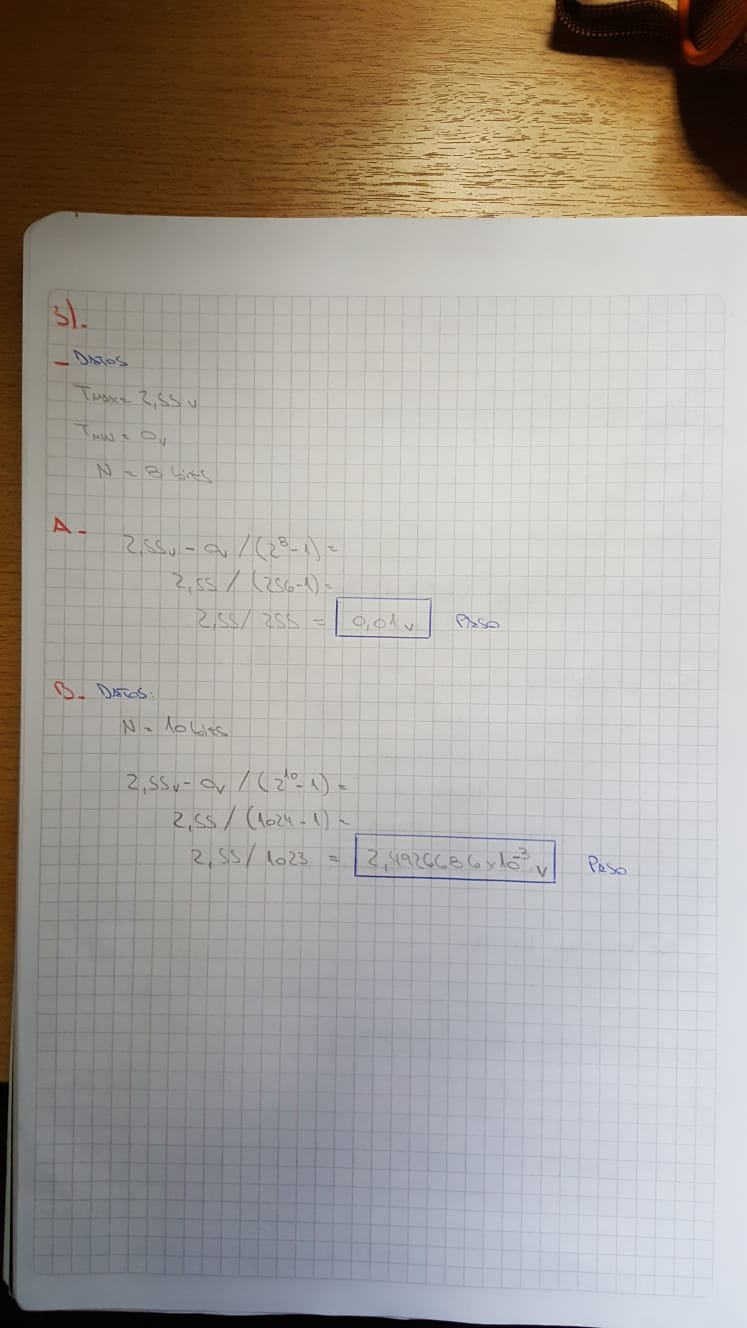 3).
- DATOS
Tmax = 2,55 v
Tmin = 0v
N = 8 bits
A - 2,55v - 0v / (2⁸ - 1) =
2,55 / (256 - 1) =
2,55 / 255 = 0,01 v PASO
B - DATOS:
N = 10 bits
2,55v - 0v / (2¹⁰ - 1) =
2,55 / (1024 - 1) =
2,55 / 1023 = 2,4926686 x 10⁻³ v PASO